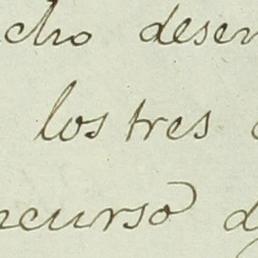 cho desen
los tres
ncurso d